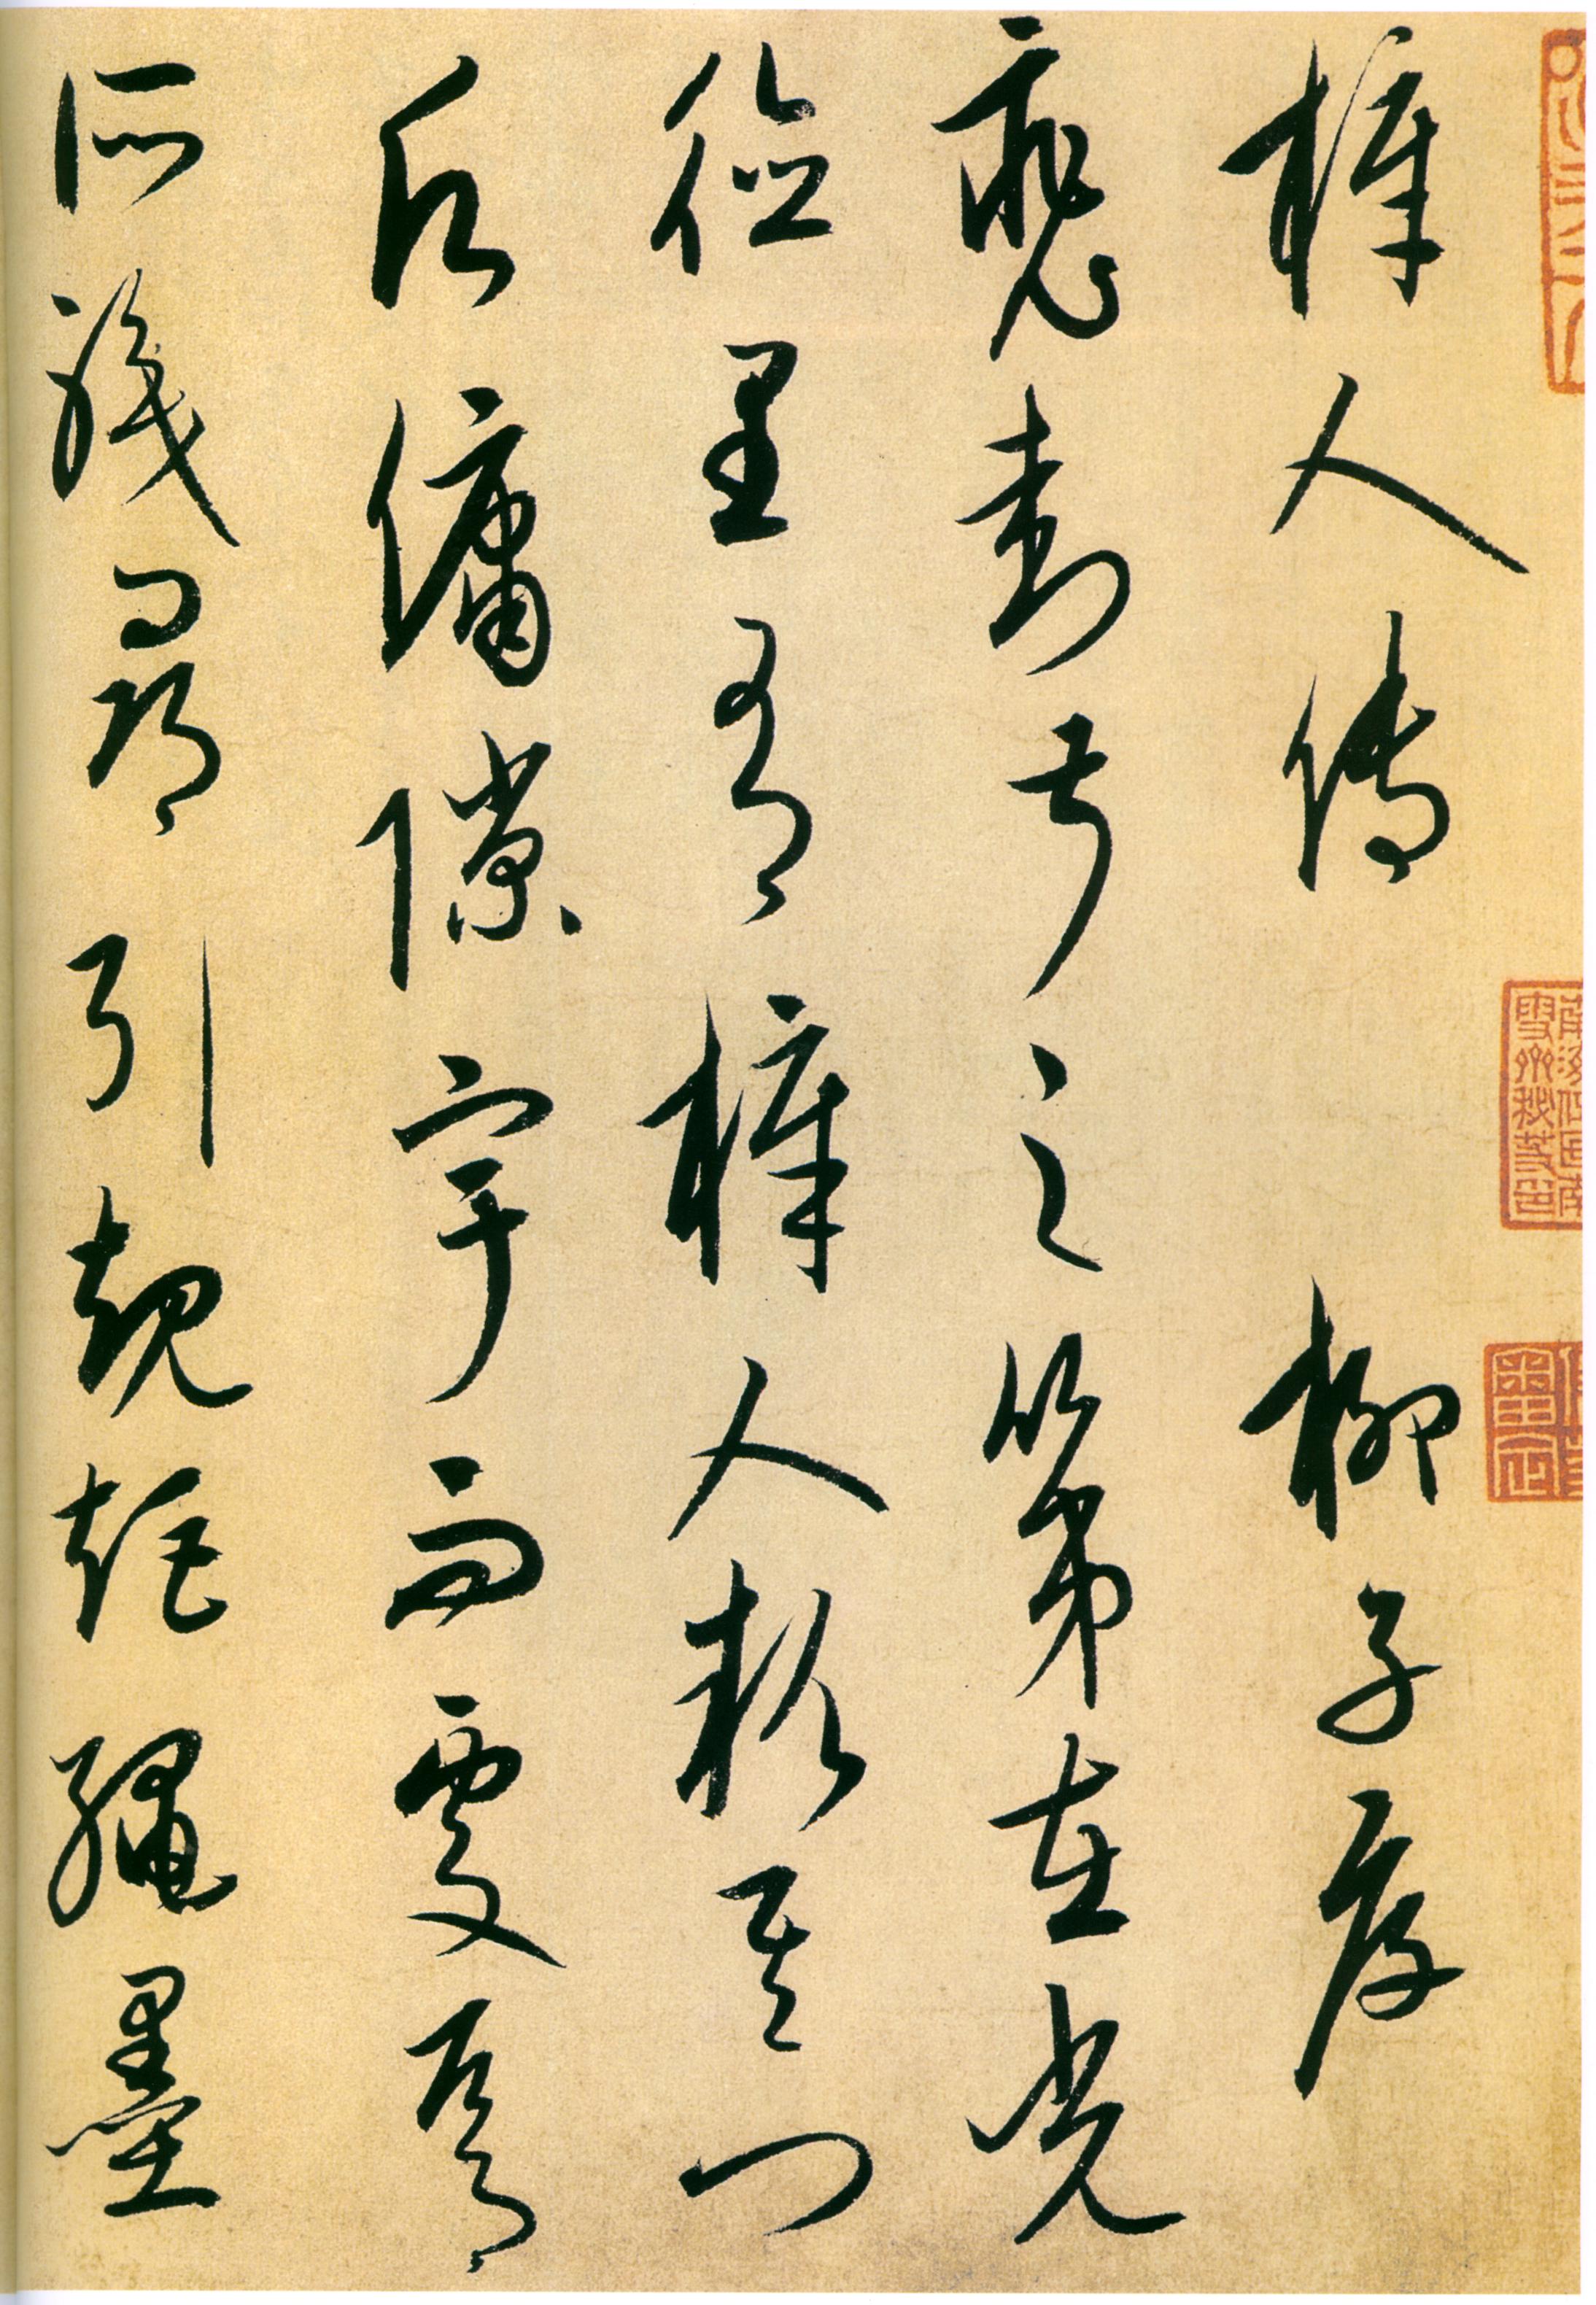 梓人傳 柳子厚
裴封叔之第在光
德里有梓人款其門
願傭隙宇而處焉
所職尋引規矩繩墨